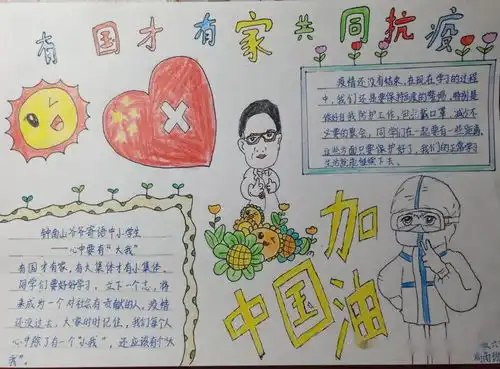 有国才有家共同抗疫
疫情还没有结束,在现在学习的过程
中,我们还是要保持高度的警惕,特别是
做好自我防护工作,回
不要的聚会,同学们在一起要有一些距离,
这些方面只要保护好了,我们的正常学习
生活就能继续下去。
加
中国油
钟南山爷爷寄语中小学生
——心中要有“大我”
有国才有家,有大集体才有小集体。
同学们要好好学习,立下一个志,将
来成为一个对社会有贡献的人,疫情
还没过去,大家时时记住,我们每个人
心中除了有一个“小我”,还应该有个“大
我”。